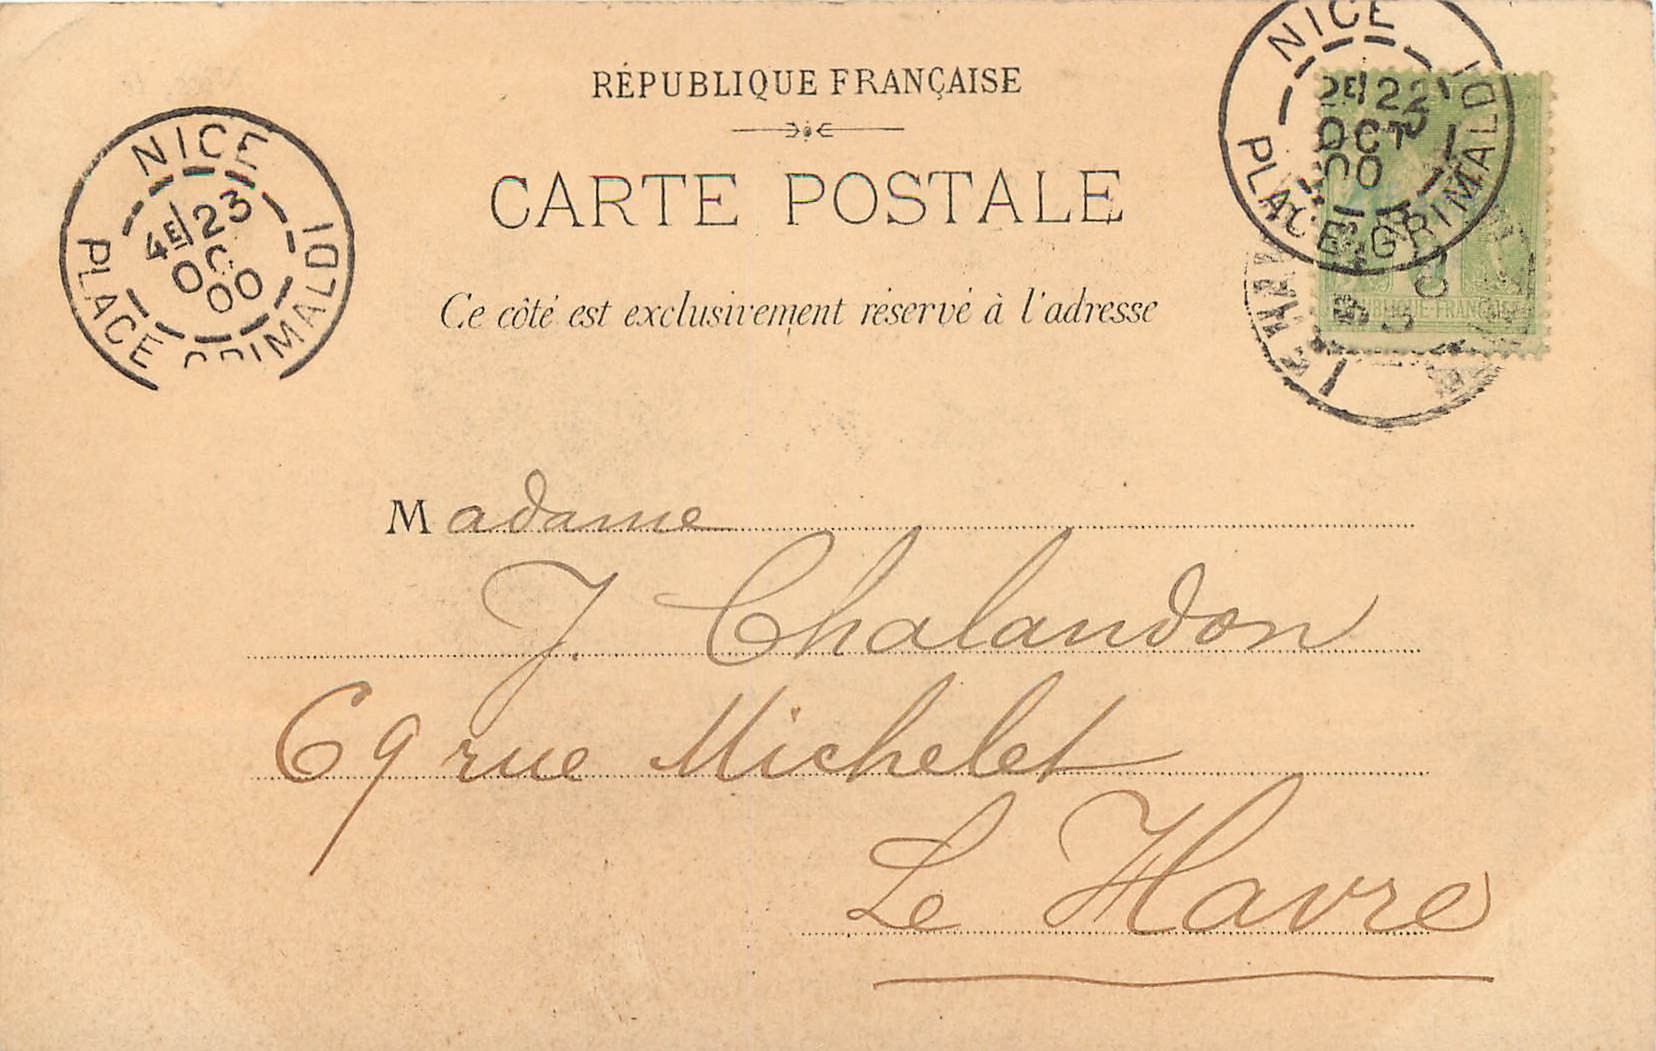 RÉPUBLIQUE FRANÇAISE
CARTE POSTALE
Ce côté est exclusivement réservé à l'adresse
NICE
4E 23
OC
00
PLACE GRIMALDI
NICE
2E 22
OCT
00
PLACE GRIMALDI
Madame
J. Chalandon
69 rue Michelet
Le Havre